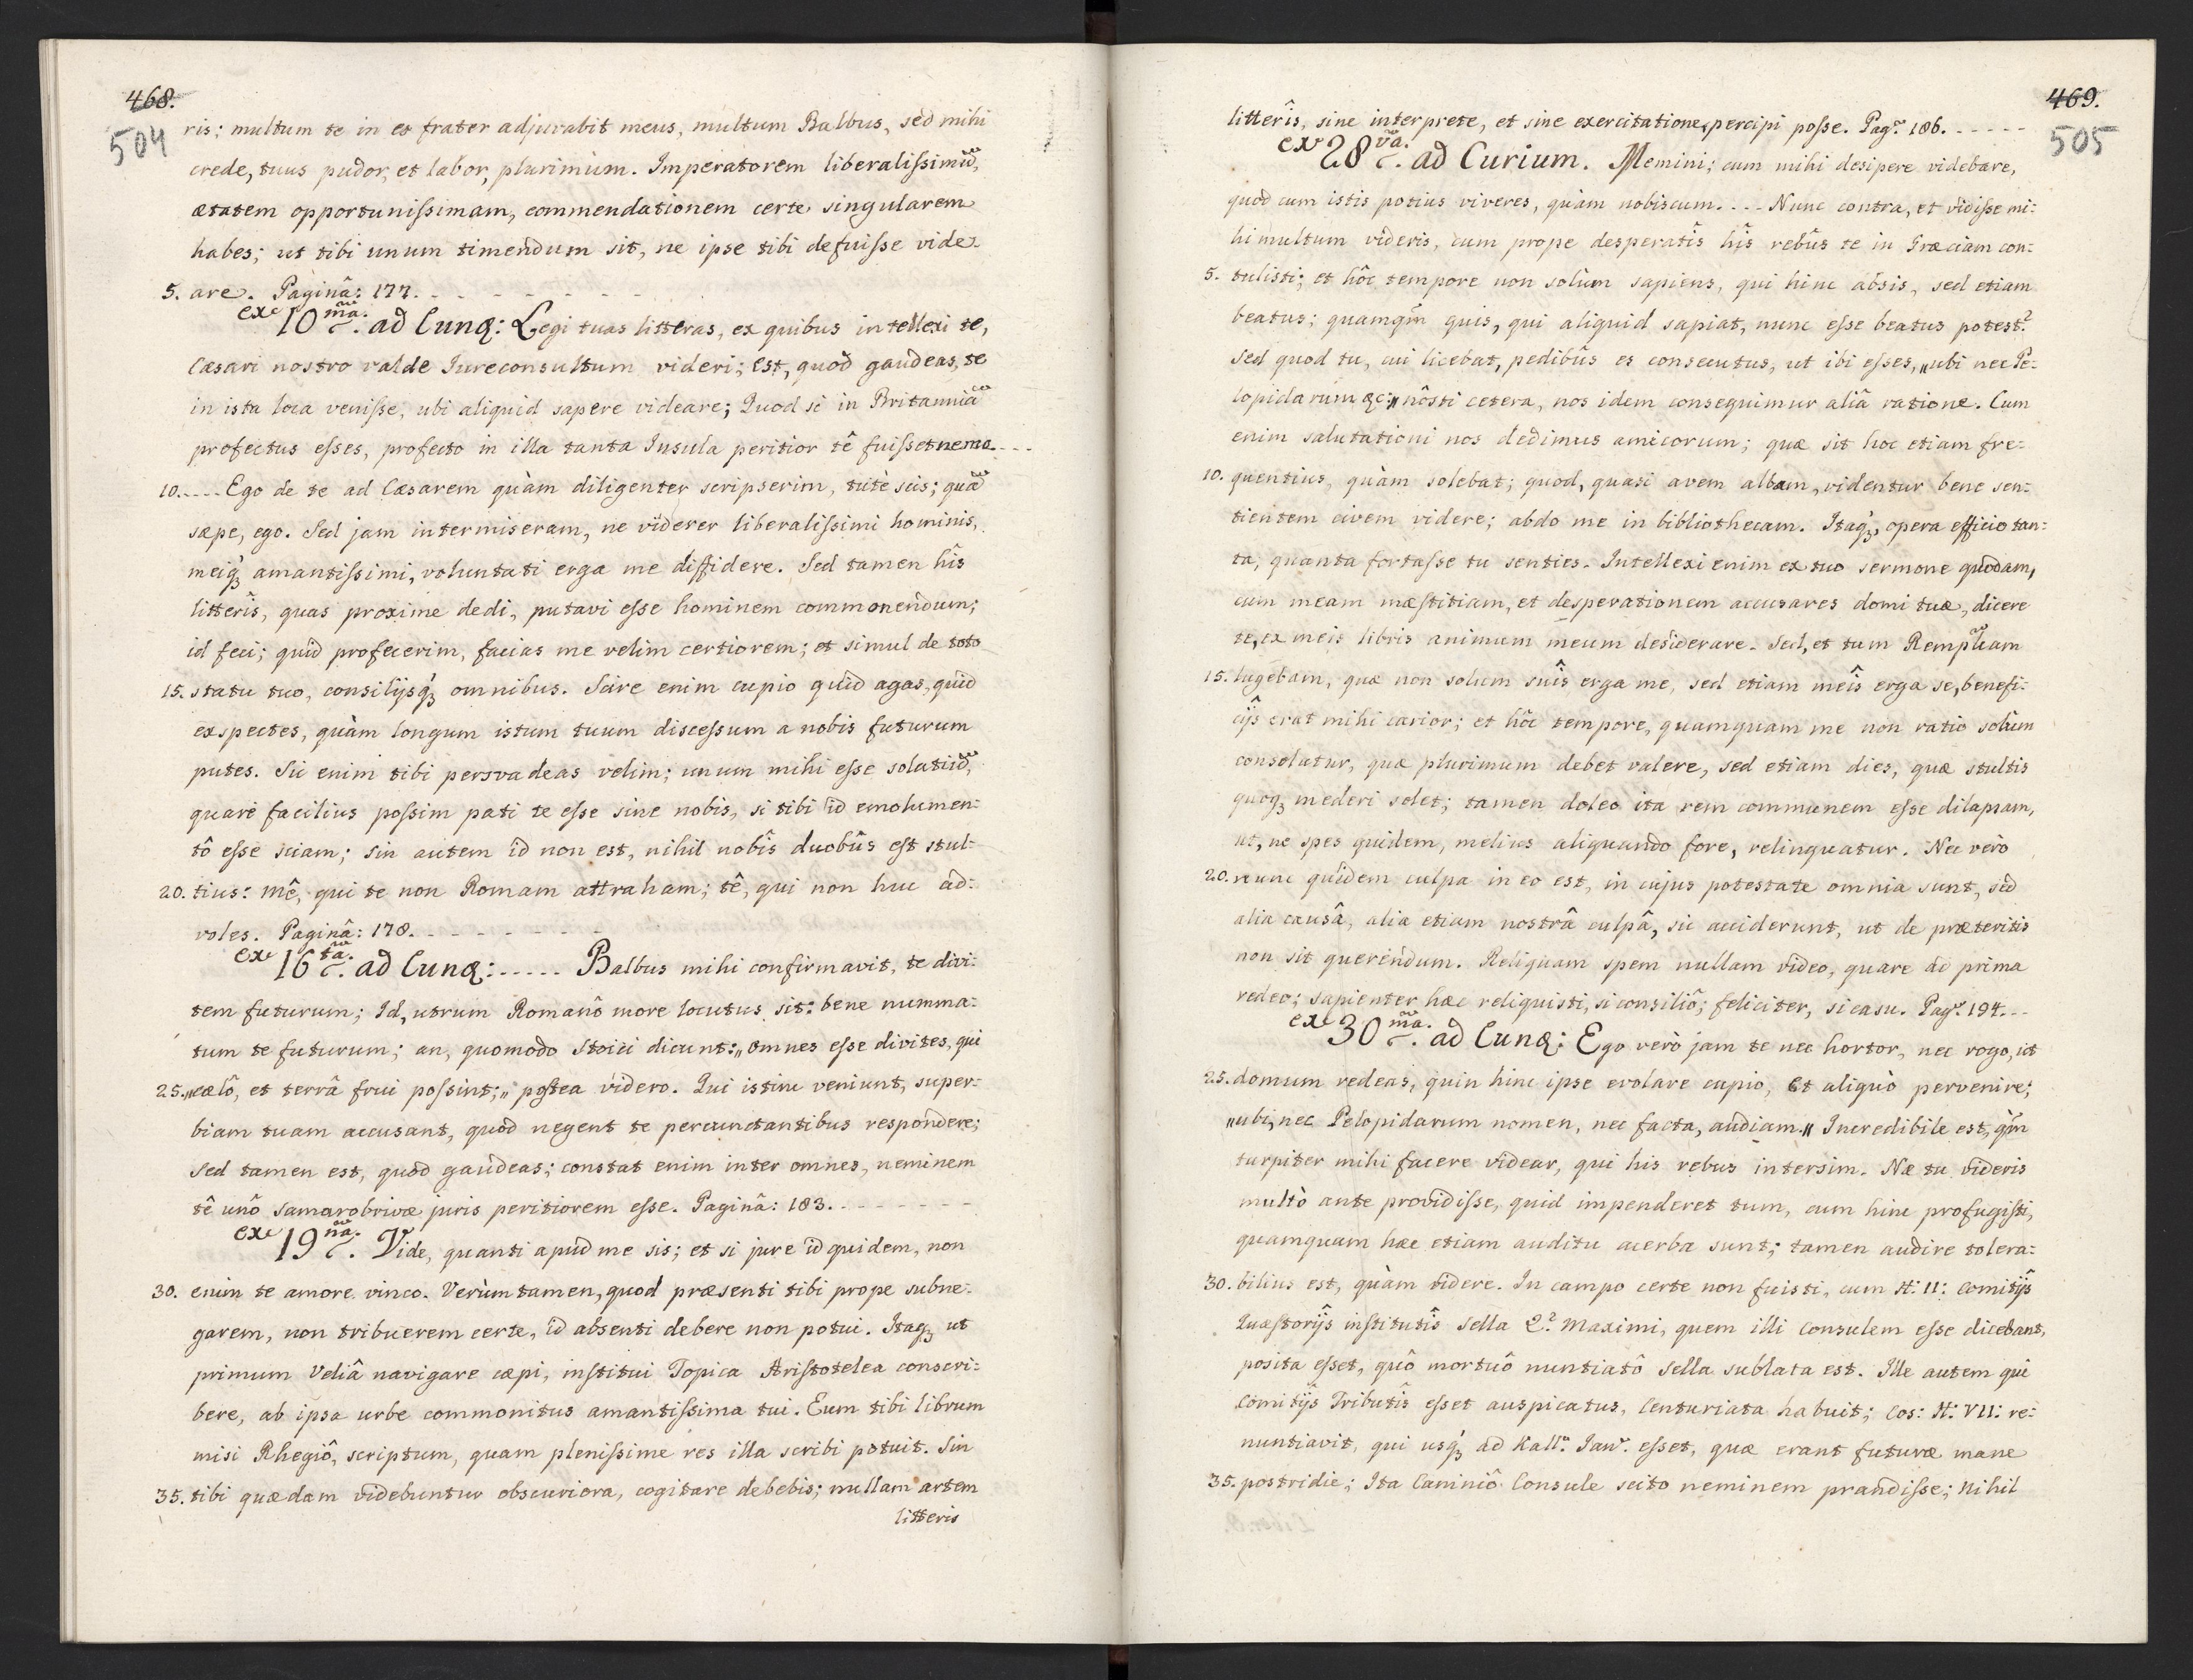 468.
504
ris; multum te in eo frater adjuvabit meus, multum Balbus, sed mihi
crede, tuus pudor, et labor, plurimùm. Imperatorem liberalissimũ,
ætatem opportunissimam, commendationem certe singularem
habes; ut tibi unum timendum sit, ne ipse tibi defuisse vide-
5. are. Paginâ: 177. - - - - - - - -
ex 10.ma ad Eund: Legi tuas litteras, ex quibus intellexi te,
Cæsari nostro valde Iureconsultum videri; Est, quod gaudeas, te
in ista loca venisse, ubi aliquid sapere videare; Quod si in Britanniã
profectus esses, profecto in illa tanta Insula peritior tê fuisset nemo. - - -
10. - - - - Ego de te ad Cæsarem quàm diligenter scripserim, tûtè scis; quã
sæpe, ego. Sed jam intermiseram, ne viderer liberalissimi hominis,
meiq́ʒ amantissimi, voluntati erga me diffidere. Sed tamen hîs
litterîs, quas proxime dedi, putavi esse hominem commonendum;
id feci; quid profecerim, facias me velim certiorem; et simul de toto
15. statu tuo, consilijsq́ʒ omnibus. Scire enim cupio quid agas, quid
exspectes, quàm longum istum tuum discessum a nobis futurum
putes. Sic enim tibi persvadeas velim; unum mihi esse solatiũ,
quare facilius possim pati te esse sine nobis, si tibi id emolumen-
tô esse sciam; sin autem id non est, nihil nobîs duobûs est stul-
20. tius: mê, qui te non Romam attraham; tê, qui non huc ad-
voles. Paginâ: 178. - - - - - - - -
ex 16.ta ad Eund: - - - - - Balbus mihi confirmavit, te divi-
tem futurum; Id, utrum Romanô more locutus sit: bene numma-
tum te futurum; an, quomodo Stoici dicunt: „omnes esse divites, qui
25. „cælô, et terrâ frui possint;„ postea videro. Qui istinc veniunt, super-
biam tuam accusant, quòd negent te percunctantibus respondere;
Sed tamen est, quòd gaudeas; constat enim inter omnes, neminem
tê unô Samarobrivæ juris peritiorem esse. Paginâ: 183. - - - - - - - -
ex 19.na Vide, quanti apud me sis; et si jure id quidem, non
30. enim te amore vinco. Verùm tamen, quod præsenti tibi prope subne-
garem, non tribuerem certe, id absenti debere non potui. Itaqʒ ut
primum Veliâ navigare cæpi, institui Topica Aristotelea conscri-
bere, ab ipsa urbe commonitus amantissima tui. Eum tibi librum
misi Rhegiô, scriptum, quam plenissime res illa scribi potuit. Sin
35. tibi quædam videbuntur obscuriora, cogitare debebis; nullam artem
litteris
469.
505
litterîs, sine interprete, et sine exercitatione, percipi posse. Pag. 186. - - - - -
ex 28.va ad Curium. Memini; cum mihi desipere videbare,
quòd cum istis potius viveres, quàm nobiscum. - - - Nunc contra, et vidisse mi-
hi multum videris, cum prope desperatîs hîs rebûs te in Græciam con-
5. tulisti; et hôc tempore non solùm sapiens, qui hinc absis, sed etiam
beatus; quamqm̃ quis, qui aliquid sapiat, nunc esse beatus potest?
Sed quod tu, cui licebat, pedibûs es consecutus, ut ibi esses, „ubi nec Pe-
lopidarum &c:„ nôsti cetera, nos idem consequimur aliâ ratione. Cum
enim salutationi nos dedimus amicorum; quæ sit hoc etiam fre-
10. quentius, quàm solebat; quod, quasi avem albam, videntur bene sen-
tientem civem videre; abdo me in bibliothecam. Itaq́ʒ, opera efficio tan-
ta, quanta fortasse tu senties. Intellexi enim ex tuo sermone quodam,
cum meam mæstitiam, et desperationem accusares domi tuæ, dicere
te, ex meis libris animum meum desiderare. Sed, et tum Rempũam
15. lugebam, quæ non solum suîs erga me, sed etiam meîs erga se, benefi-
cijs erat mihi carior; et hôc tempore, quamquam me non ratio solùm
consolatur, quæ plurimum debet valere, sed etiam dies, quæ stultis
quoqʒ mederi solet; tamen doleo ita rem communem esse dilapsam,
ut, ne spes quidem, melius aliquando fore, relinquatur. Nec verò
20. nunc quidem culpa in eo est, in cujus potestate omnia sunt, sed
alia causâ, alia etiam nostrâ culpâ, sic acciderunt, ut de præteritis
non sit querendum. Reliquam spem nullam video, quare ad prima
redeo; sapienter hæc reliquisti, si consiliô; feliciter, si casu. Pag. 194. - -
ex 30.ma ad Eund: Ego verò jam te nec hortor, nec rogo, ut
25. domum redeas, quin hinc ipse evolare cupio, et aliquò pervenire;
„ubi, nec Pelopidarum nomen, nec facta, audiam.„ Incredibile est, qm̃
turpiter mihi facere videar, qui his rebus intersim. Næ tu videris
multò ante providisse, quid impenderet tum, cum hinc profugisti,
quamquam hæc etiam auditu acerba sunt; tamen audire tolera-
30. bilius est, quàm videre. In campo certe non fuisti, cum H: II: Comitijs
Quæstorijs institutîs Sella Q. Maximi, quem illi Consulem esse dicebant,
posita esset, quô mortuô nuntiatô Sella sublata est. Ille autem qui
Comitijs Tributîs esset auspicatus, Centuriata habuit; Cos: H: VII: re-
nuntiavit, qui usq́ʒ ad Kall. Jan. esset, quæ erant futuræ mane
35. postridie; Ita Caminiô Consule scito neminem prandisse; Nihil